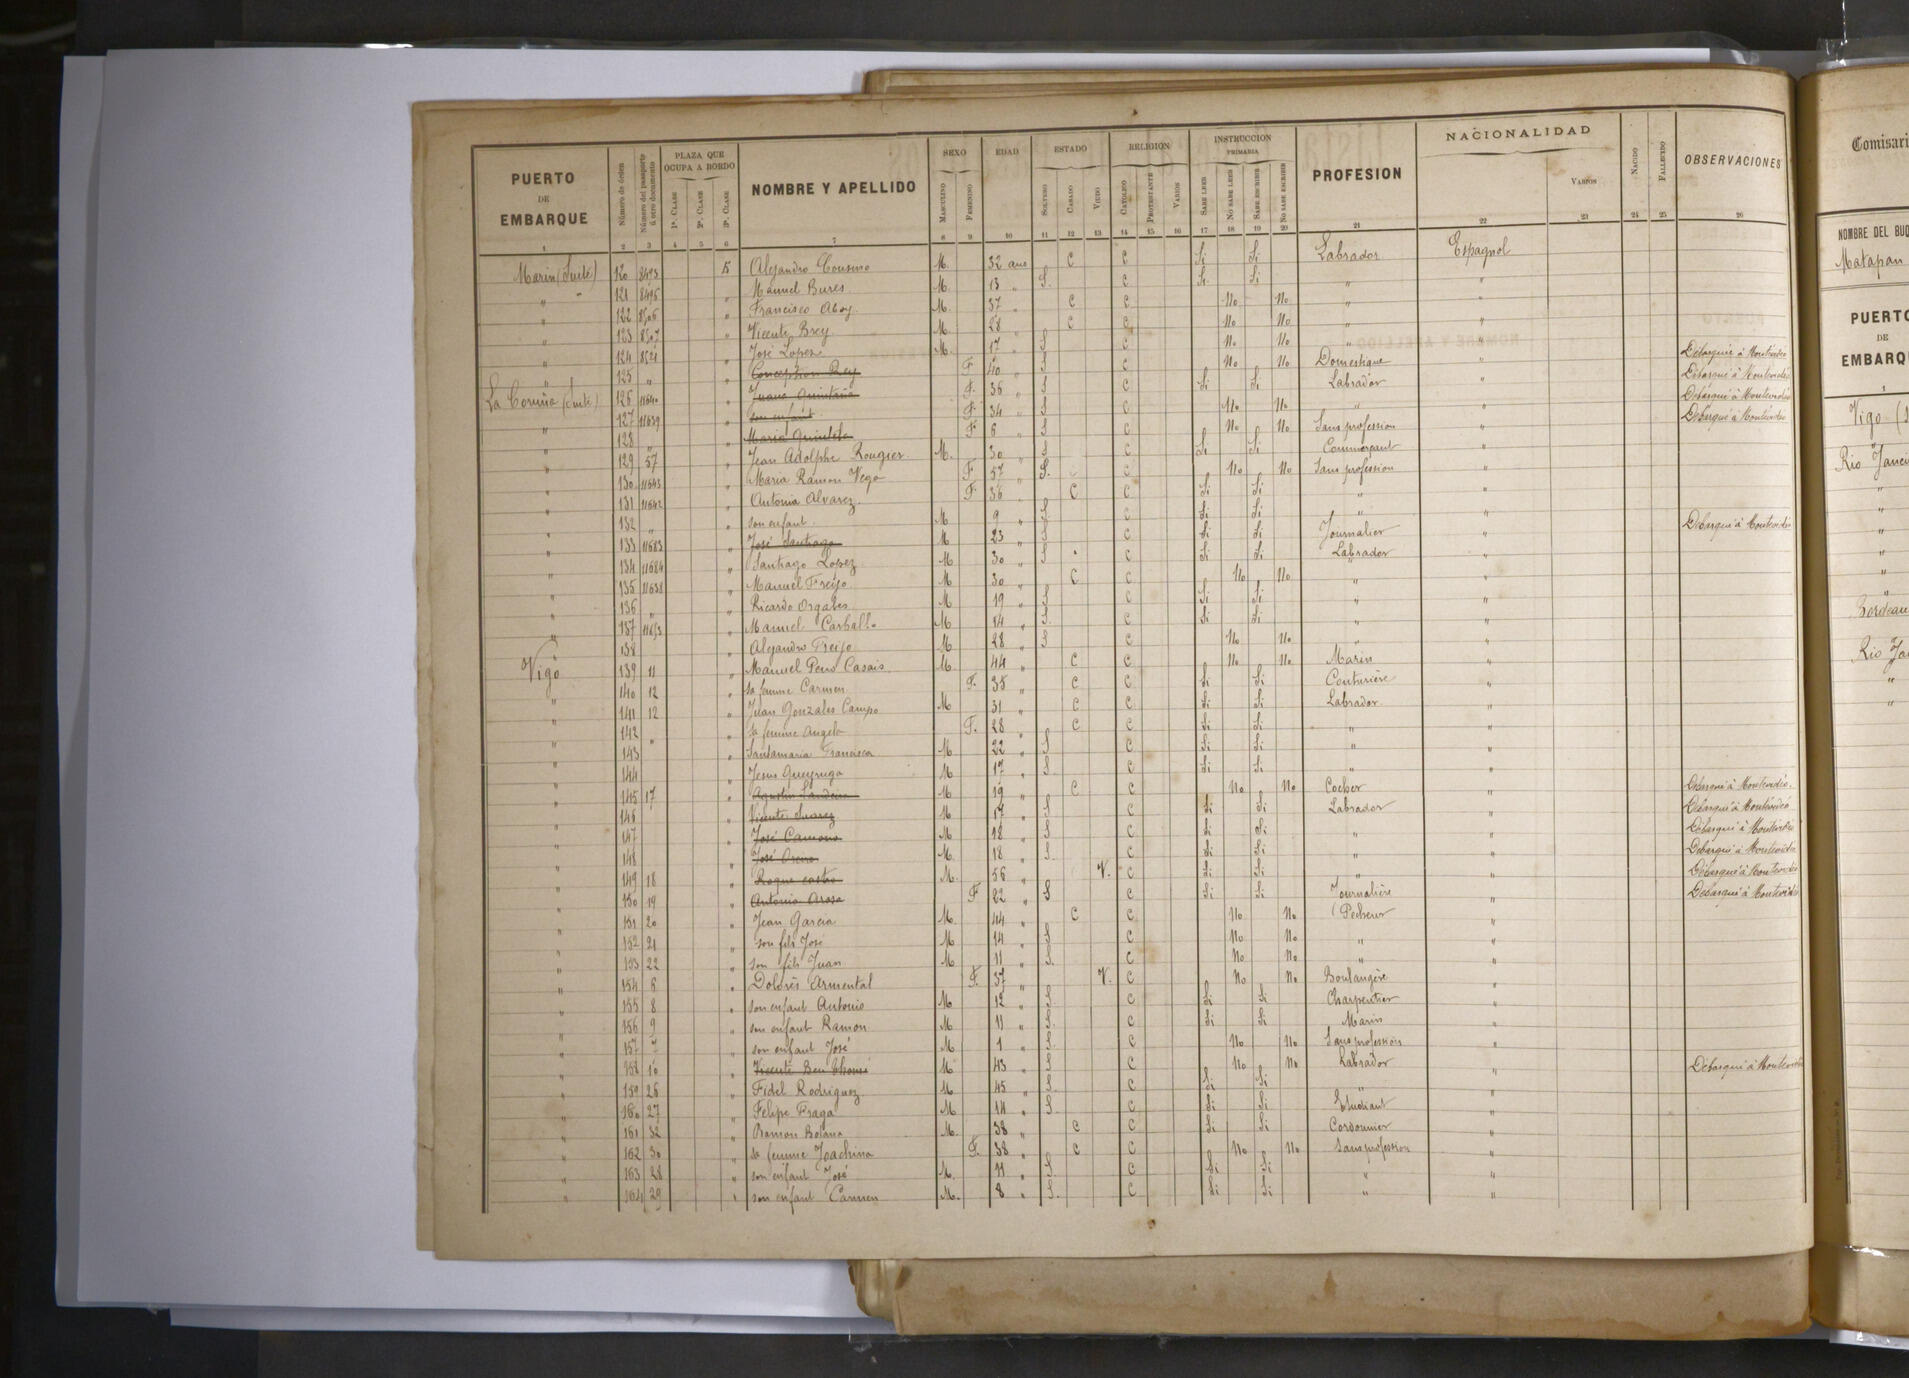 PUERTO DE EMBARQUE
Número de órden
Número del pasaporte ó otro documento
PLAZA QUE OCUPA A BORDO
1ª. CLASE
2ª. CLASE
3ª. CLASE
NOMBRE Y APELLIDO
SEXO
MASCULINO
FEMENINO
EDAD
ESTADO
SOLTERO
CASADO
VIUDO
RELIGION
CATOLICO
PROTESTANTE
VARIOS
INSTRUCCION PRIMARIA
SABE LEER
NO SABE LEER
SABE ESCRIBIR
NO SABE ESCRIBIR
PROFESION
NACIONALIDAD
VARIOS
NACIDO
FALLECIDO
OBSERVACIONES
1 2 3 4 5 6 7 8 9 10 11 12 13 14 15 16 17 18 19 20 21 22 23 24 25 26
Marin (Suite) 120 8493 Alejandro Cousino M. 32 ans C C Si Si Labrador Espagnol
" 121 8495 " Manuel Bures M. 13 " S. C Si Si " "
" 122 " Francisco Aboy. M. 37 C C No No " "
" 123 8507 " Vicente Brey M. 28 " C C No No " "
" 124 8521 " José Lopez M. 17 " S C No No " "
" 125 " " Conception Rey F 40 " S C No No Domestique " Débarqué à Montévidéo
La Coruña (Suite) 126 11640 " Juana Quintana F. 36 " S C Si Si Labrador " Débarqué à Montevideo
" 127 11639 " son enfant F. 34 " S C No No " " Débarqué à Montevideo
" 128 " " Maria F 6 " S C No No Sans profession " Débarqué à Montevideo
" 129 57 " Jean Adolphe Rougier M. 30 " S C Si Si Commerçant "
" 130 11643 " Maria Ramon Vega F 57 " S. C No No Sans profession "
" 131 11642 " Antonia Alvarez F 36 C C Si Si " "
" 132 " " son enfant M 9 " S C Si Si " "
" 133 11683 " José Santiago M 23 " S C Si Si Journalier " Débarqué à Montevideo
" 134 11684 " Santiago Lopez M 30 " S C Si Si Labrador "
" 135 11638 " Manuel Freijo M 30 " C C No No " "
" 136 " " Ricardo Orgales M 19 " S C Si Si " "
" 137 " Manuel Carballo M 14 " S. C Si Si " "
" 138 " Alejandro Freijo M 28 " S C No No " "
Vigo 139 11 " Manuel Pena Casais M. 44 " C C No No Marin "
" 140 12 " sa femme Carmen F. 35 " C C Si Si Couturière "
" 141 12 " Juan Gonzales Campo M 31 " C C Si Si Labrador "
" 142 " " sa femme Angela F. 28 " C C Si Si " "
" 143 " Santamaria Francisca M 22 " S C Si Si " "
" 144 " Jesus Queyruga M 17 " S C Si Si " "
" 145 17 " Agustin M 19 " C C No No Cocher " Débarqué à Montevidéo.
" 146 " Vicente Suarez M 17 " S C Si Si Labrador " Débarqué à Montévidéo
" 147 " José M 18 " S C Si Si " " Débarqué à Montevidéo
" 148 " José M. 18 " S C Si Si " " Débarqué à Montevideo
" 149 18 " Roque castro M. 56 " V. C Si Si " " Débarqué à Montevidéo
" 150 19 " Antonia Arosa F 22 " S C Si Si Journalière " Débarqué à Montevidéo
" 151 20 " Jean Garcia M. 44 " C C No No Pecheur "
" 152 21 " son fils José M 14 " S C No No " "
" 153 22 " son fils Juan M 11 " S. C No No " "
" 154 6 " Dolorès Armental F. 37 " V. C No No Boulangère "
" 155 8 " son enfant Antonio M 12 " S C Si Si Charpentier "
" 156 9 " son enfant Ramon M 11 " S. C Si Si Marin "
" 157 7 " son enfant José M 1 " S C No No Sans profession "
" 158 10 " Vicente M 43 " S C No No Labrador " Débarqué à Montevidéo
" 159 26 " Fidel Rodriguez M 45 " S C Si Si " "
" 160 27 " Felipe Fraga M 14 " S. C Si Si Etudiant "
" 161 32 " Ramon M. 38 " C C Si Si Cordonnier "
" 162 30 " sa femme Joachina F. 38 " C C No No Sans profession "
" 163 28 " son enfant José M. 11 " S C Si Si " "
" 164 29 " son enfant Carmen M. 8 " S. C Si Si " "
Comisari
NOMBRE DEL BUQ
Matapan
PUERTO
DE
EMBARQU
1
Vigo
Rio Janei
"
"
"
"
"
Bordeau
Rio Ja
"
"